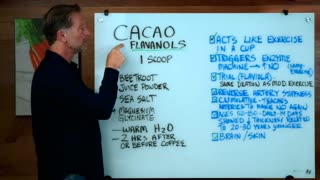 CACAO
FLAVANOLS
1 SCOOP
BEETROOT
JUICE POWDER
SEA SALT
MAGNESIUM
GLYCINATE
WARM H2O
2 HRS AFTER
OR BEFORE COFFEE
ACTS LIKE EXERCISE
IN A CUP
TRIGGERS ENZYME
MACHINE → ↑ NO
TRIAL (FLAVIOLA)
SAME DILATION AS MOD. EXERCISE
REVERSE ARTERY STIFFNESS
CUMULATIVE - TEACHES
ARTERIES TO MAKE NO AGAIN
AGES 50-80 - DAILY 14 DAYS
SHOWED ↓ THICKNESS RELATED
TO 20-30 YEARS YOUNGER
BRAIN / SKIN